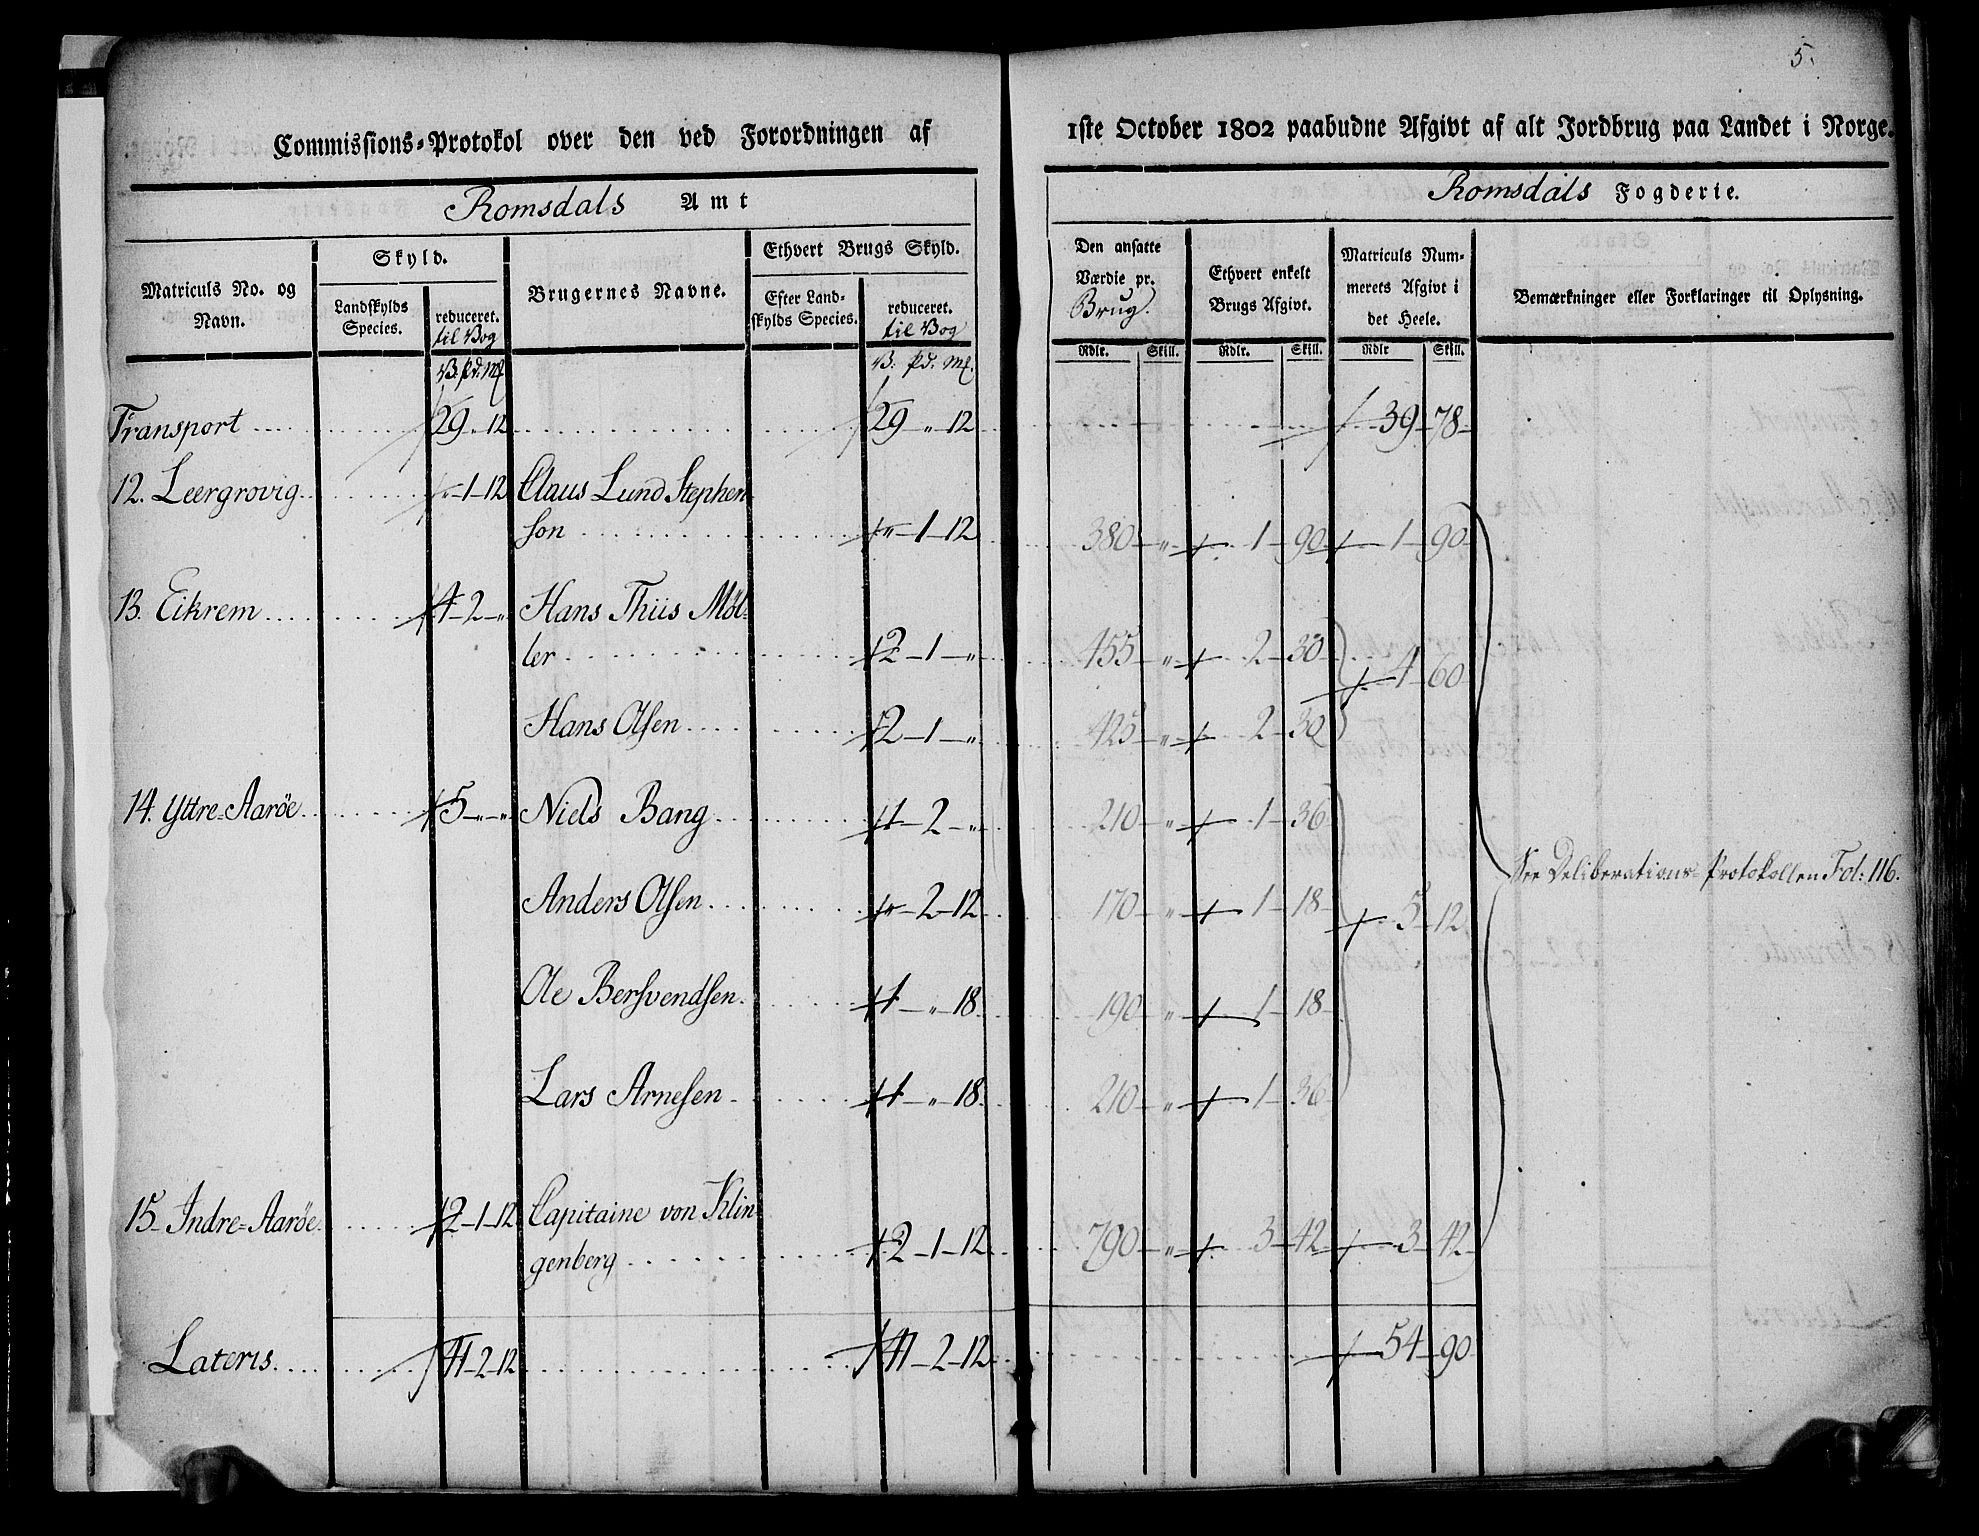 5.
Commissions-Protokol over den ved Forordningen af 1ste October 1802 paabudne Afgivt af alt Jordbrug paa Landet i Norge.
Romsdals Amt
Romsdals Fogderie.
Matriculs No. og Navn.
Skyld.
Landskylds Species.
reduceret. til Bog
Brugernes Navne.
Ethvert Brugs Skyld.
Efter Landskylds Species.
reduceret. til Bog
Den ansatte Værdie pr. Brug.
Ethvert enkelt Brugs Afgivt.
Matriculs Nummerets Afgivt i det Heele.
Bemærkninger eller Forklaringer til Oplysning.
V. pd. Mk. V. pd. Mk. Rdlr. Skill. Rdlr. Skill. Rdlr Skill.
Transport .... 29 " 12 .... 29 " 12 .... 39 78
12. Leergrovig .... " 1 12 Claus Lund Stephen-
son .... " 1 12 380 " 1 90 1 90
13. Eikrem .... 4 2 " Hans Thiis Möl-
ler .... 2 1 " 455 " 2 30 4 60
Hans Olsen .... 2 1 " 425 " 2 30
14. Yttre-Aaröe .... 5 " " Niels Bang .... 1 2 " 210 " 1 36
See Deliberations-Protokollen Fol: 116.
Anders Olsen .... " 2 12 170 " 1 18 5 12
Ole Bersvendsen .... 1 " 18 190 " 1 18
Lars Arnesen .... 1 " 18 210 " 1 36
15. Indre-Aaröe .... 2 1 12 Capitaine von Klin-
genberg .... 2 1 12 790 " 3 42 3 42
Lateris .... 41 2 12 .... 41 2 12 .... 54 90